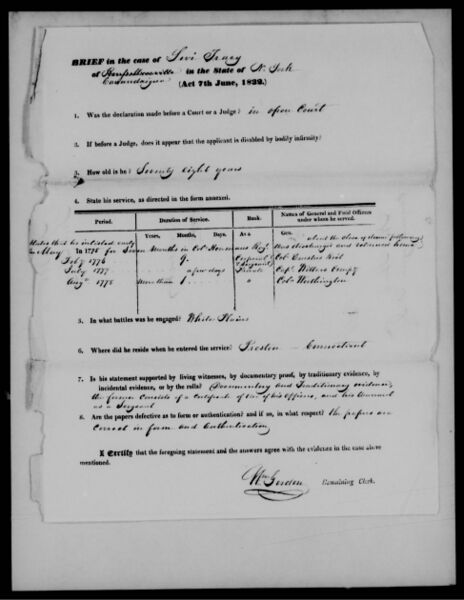 BRIEF in the case of Levi Tracy
of in the State of N. York
Canandaigua
(Act 7th June, 1832.)
1. Was the declaration made before a Court or a Judge? in open Court
2. If before a Judge, does it appear that the applicant is disabled by bodily infirmity?
3. How old is he? Seventy eight years
4. State his service, as directed in the form annexed.
Period. Duration of Service. Rank. Names of General and Field Officers under whom he served.
Years. Months. Days. As a Gen.
States that he enlisted early about the close of
in May 1775 for Seven Months in Col. Regt. was discharged and returned home
Feby. 1776 9 Corporal & Sergeant Col.
July 1777 a few days Private Capt. Compy
Augt. 1778 More than 1 Col. Worthington
5. In what battles was he engaged? White Plains
6. Where did he reside when he entered the service? Preston Connecticut
7. Is his statement supported by living witnesses, by documentary proof, by traditionary evidence, by
incidental evidence, or by the rolls? Documentary and Traditionary evidence,
the former consists of a Certificate of one of his Officers, and his Warrant
as a Sergeant
8. Are the papers defective as to form or authentication? and if so, in what respect? The papers are
correct in form and authentication
I Certify that the foregoing statement and the answers agree with the evidence in the case above
mentioned.
Wm Gordon Examining Clerk.